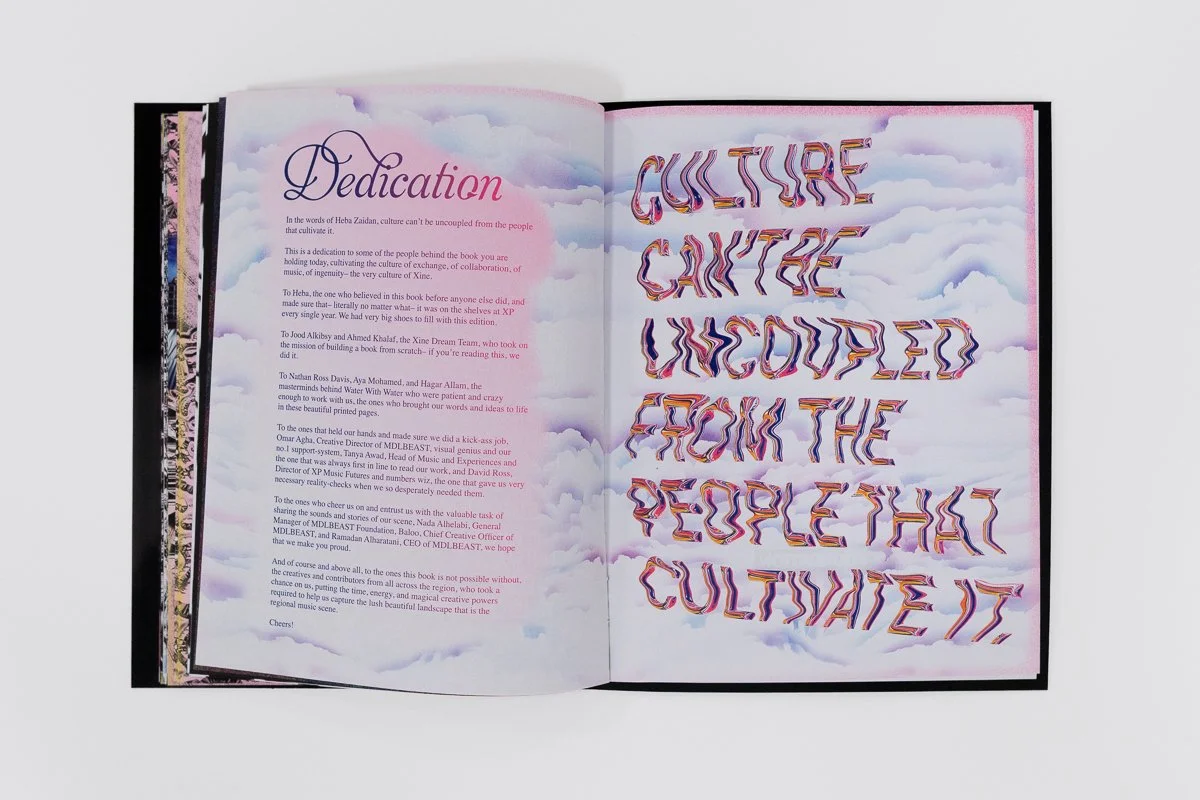 Dedication
In the words of Heba Zaidan, culture can't be uncoupled from the people
that cultivate it.
This is a dedication to some of the people behind the book you are
holding today, cultivating the culture of exchange, of collaboration, of
music, of ingenuity– the very culture of Xine.
To Heba, the one who believed in this book before anyone else did, and
made sure that– literally no matter what– it was on the shelves at XP
every single year. We had very big shoes to fill with this edition.
To Jood Alkibsy and Ahmed Khalaf, the Xine Dream Team, who took on
the mission of building a book from scratch– if you're reading this, we
did it.
To Nathan Ross Davis, Aya Mohamed, and Hagar Allam, the
masterminds behind Water With Water who were patient and crazy
enough to work with us, the ones who brought our words and ideas to life
in these beautiful printed pages.
To the ones that held our hands and made sure we did a kick-ass job.
Omar Agha, Creative Director of MDLBEAST, visual genius and our
no.1 support-system, Tanya Awad, Head of Music and Experiences and
the one that was always first in line to read our work, and David Ross,
Director of XP Music Futures and numbers wiz, the one that gave us very
necessary reality-checks when we so desperately needed them.
To the ones who cheer us on and entrust us with the valuable task of
sharing the sounds and stories of our scene, Nada Alhelabi, General
Manager of MDLBEAST Foundation, Baloo, Chief Creative Officer of
MDLBEAST, and Ramadan Alharatani, CEO of MDLBEAST, we hope
that we make you proud.
And of course and above all, to the ones this book is not possible without,
the creatives and contributors from all across the region, who took a
chance on us, putting the time, energy, and magical creative powers
required to help us capture the lush beautiful landscape that is the
regional music scene.
Cheers!
CULTURE
CAN'T BE
UNCOUPLED
FROM THE
PEOPLE THAT
CULTIVATE IT.